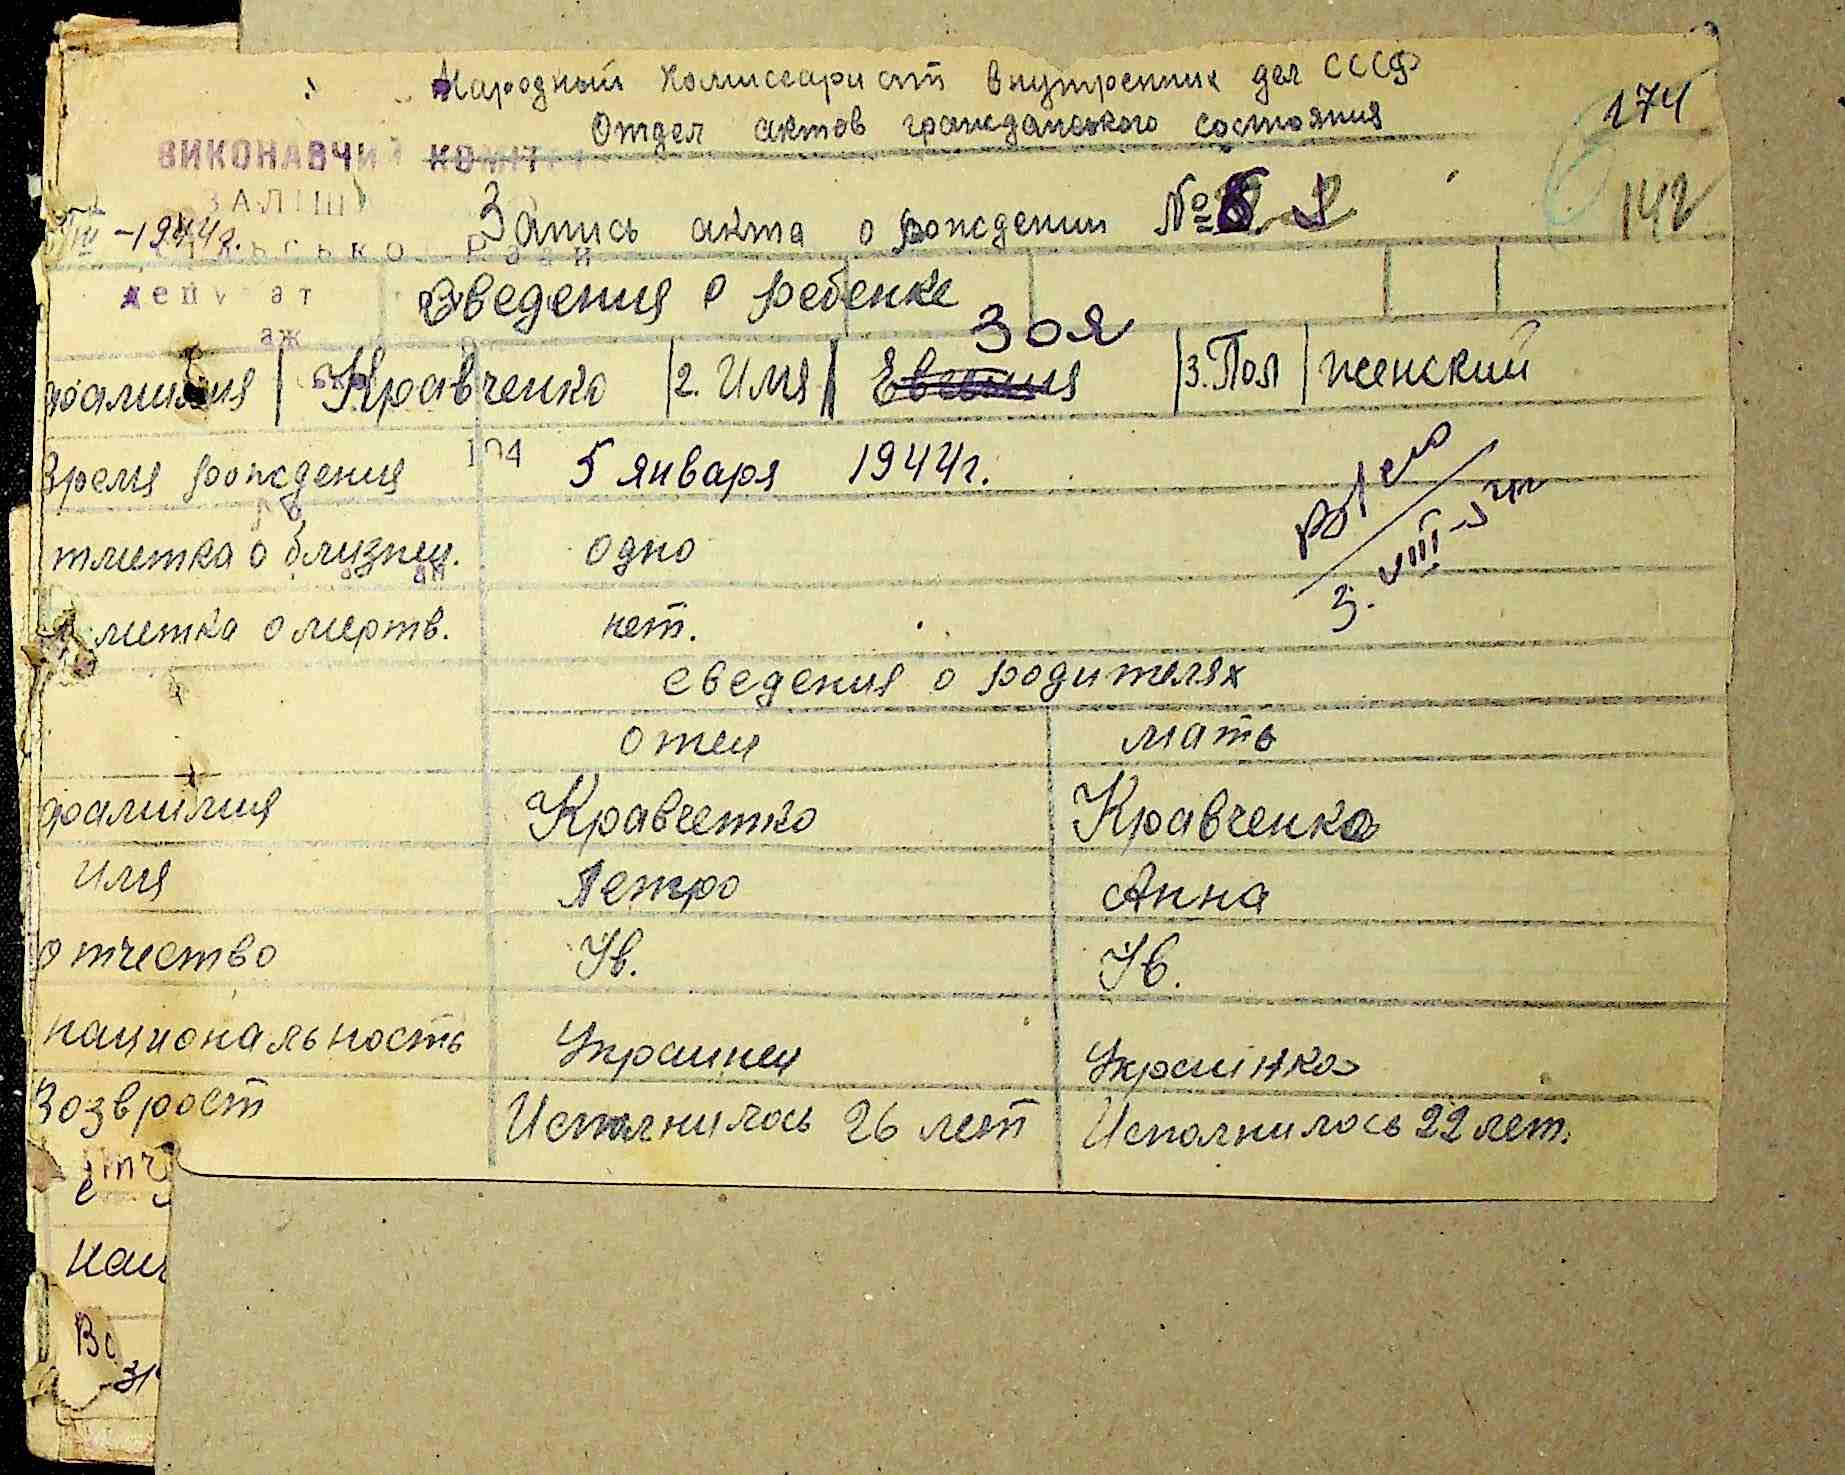 Народный Комиссариат внутренних дел СССР
Отдел актов гражданского состояния
174
ВИКОНАВЧИЙ КОМІТ
ЗАЛІШ
142
Запись акта о рождении №
-1944г.
деп ат
Сведения о ребенке
Зоя
фамилия Кравченко 2. Имя Евгения 3. Пол женский
время рождения 5 января 1944г.
тметка о близнец. одно
3. VIII-
метка о мертв. нет.
сведения о родителях
отец мать
фамилия Кравченко Кравченко
имя Петро Анна
отчество Ив. Ив.
национальность Украинец Украінка
Возврост Исполнилось 26 лет Исполнилось 22 лет.